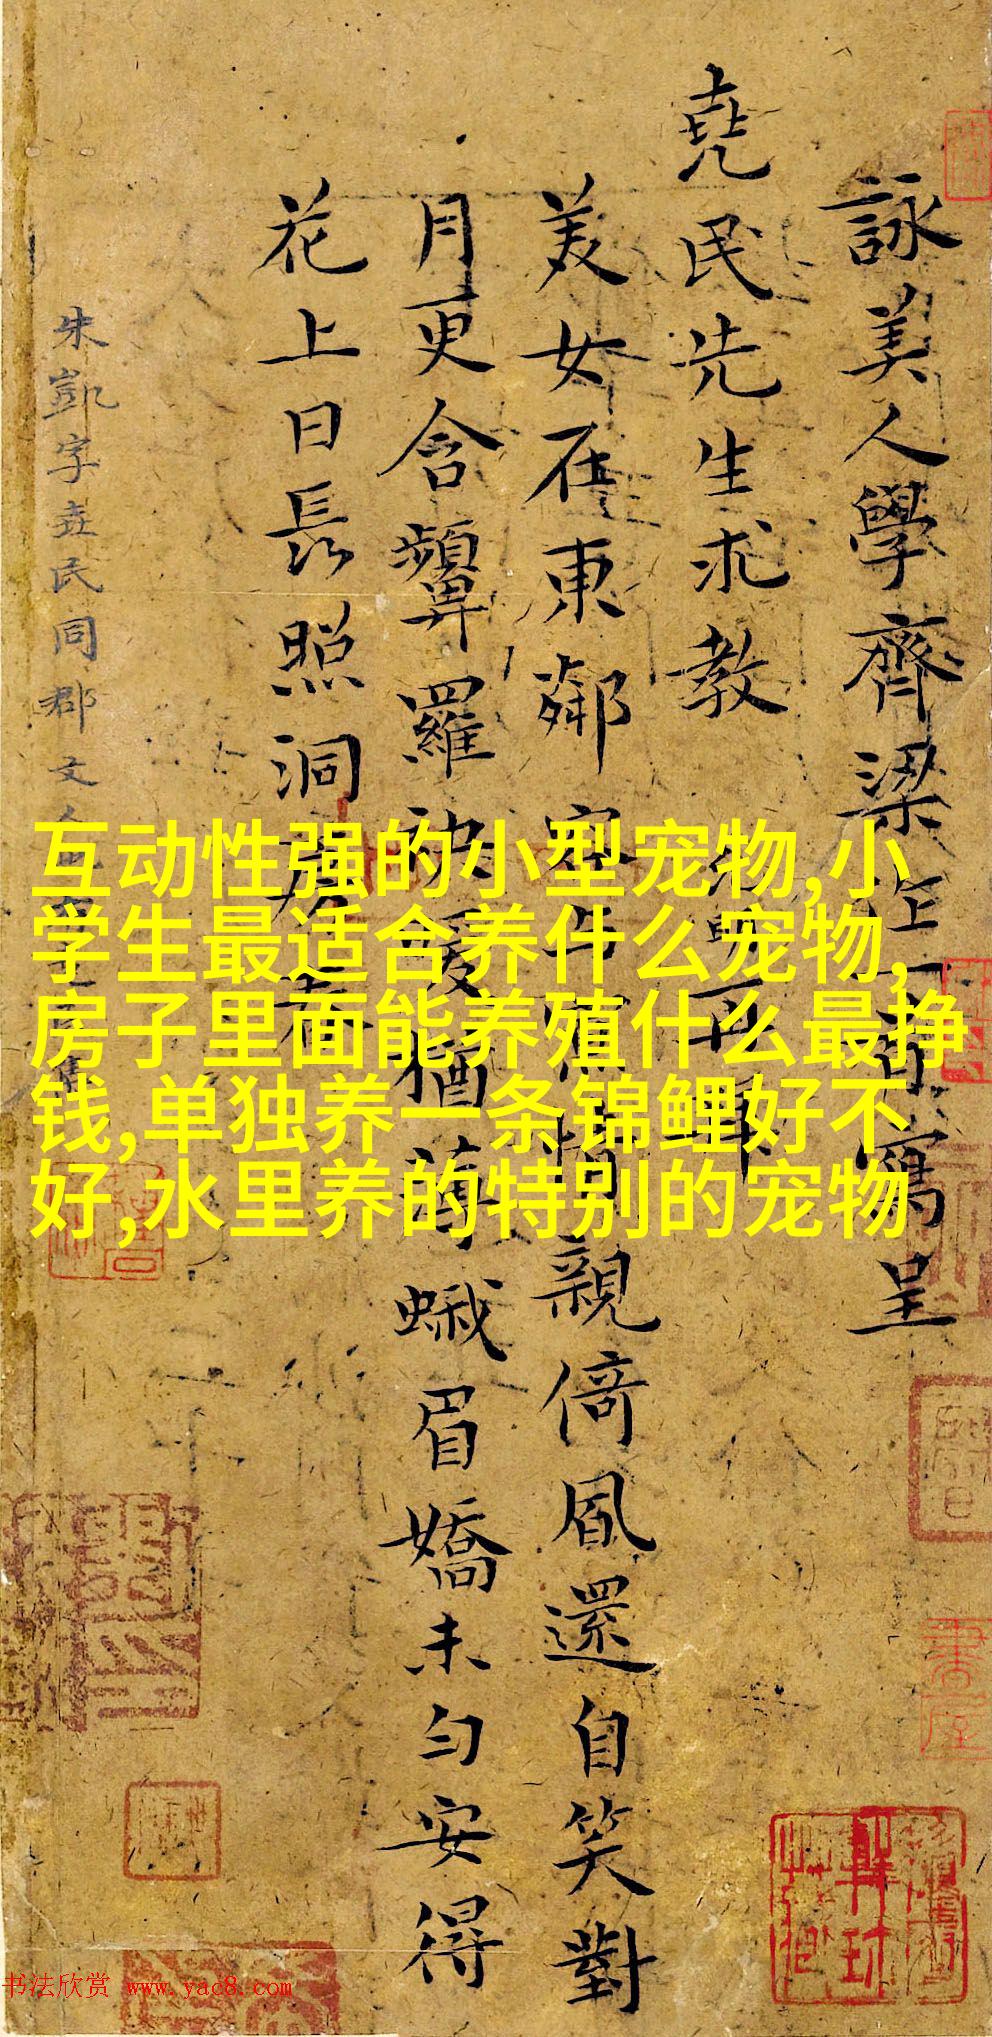 詠美人學齊梁上
寫呈
堯民先生求教
美女在東鄰
親倚風還自笑對
月更含顰羅袂
蛾眉嬌未勻安得
花上日長照洞房春
朱凱字堯民同郡文人
互动性强的小型宠物,小
学生最适合养什么宠物,
房子里面能养殖什么最挣
钱,单独养一条锦鲤好不
好,水里养的特别的宠物
书法欣赏 www.yac8.com